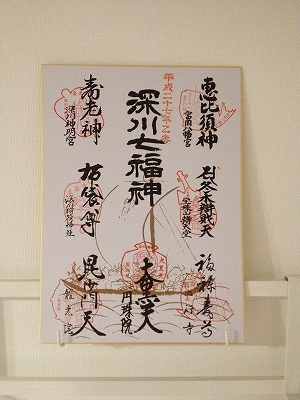 恵比須神
富岡八幡宮
冬木弁財天
福禄寿尊
平成二十七年乙未
深川七福神
大黒天
円珠院
寿老神
深川神明宮
布袋尊
深川稲荷神社
毘沙門天
龍光院